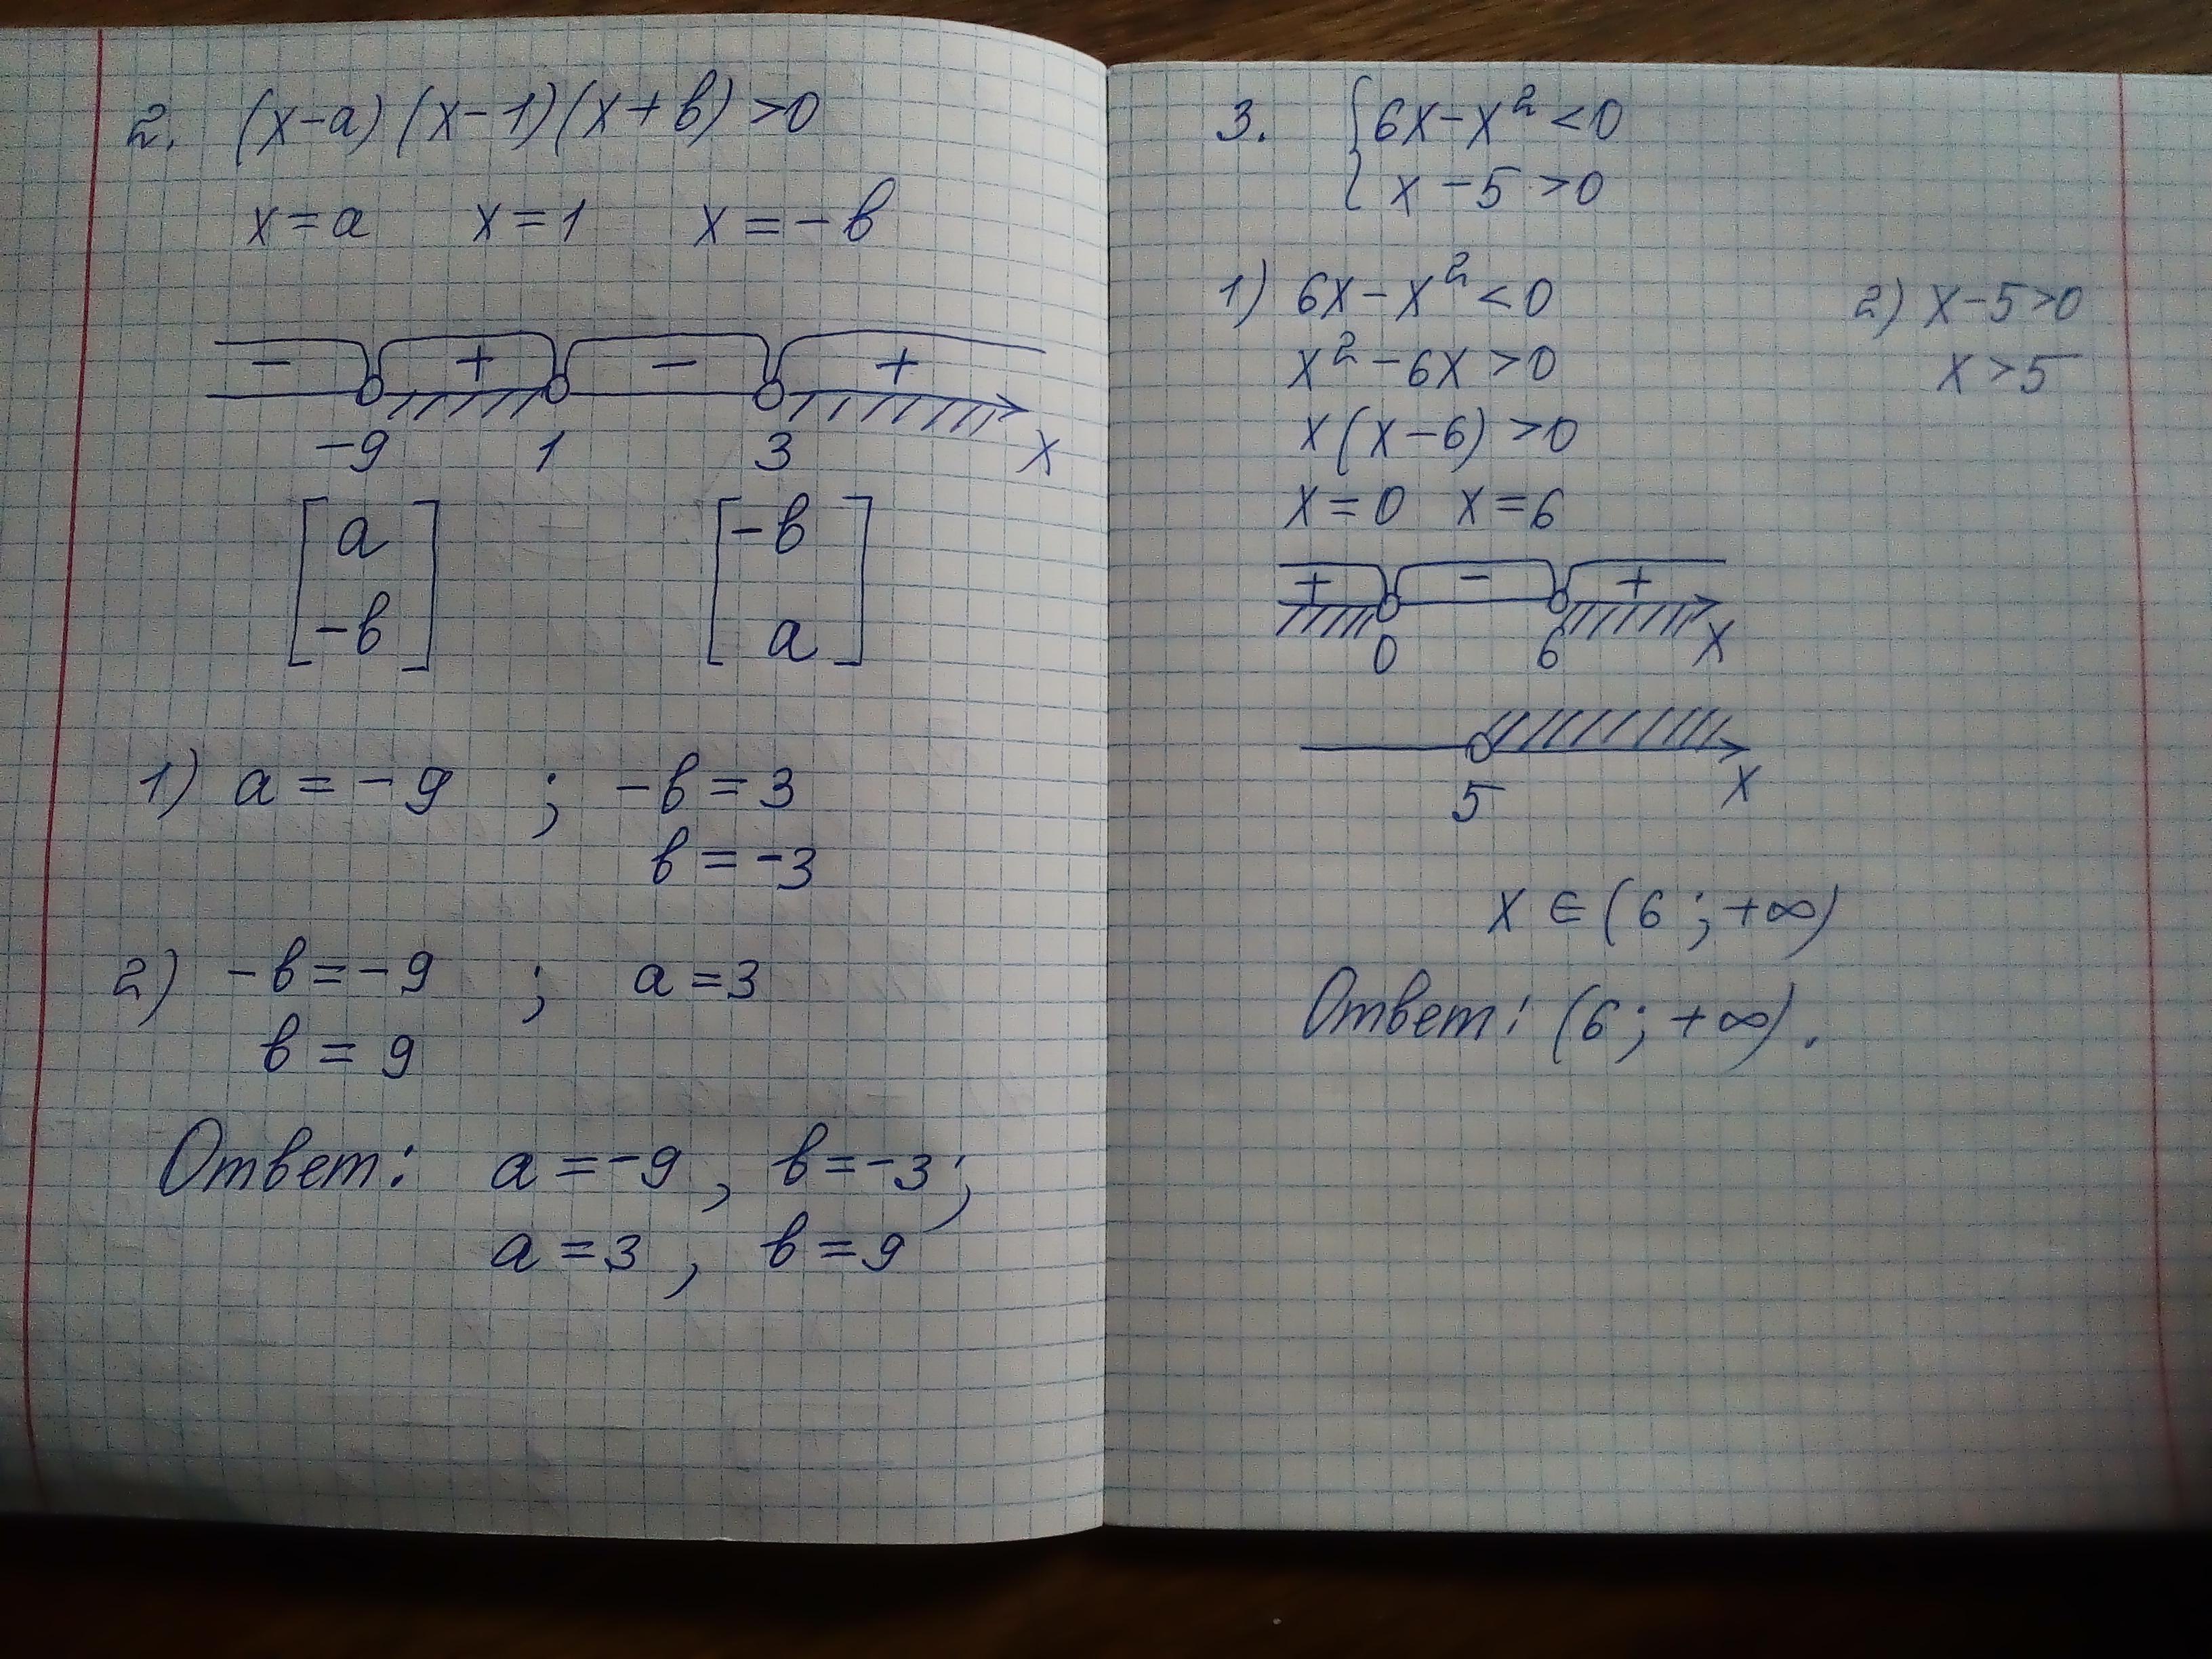 2. (x-a)(x-1)(x+в)>0
x=a x=1 x=-в
- + - +
-9 1 3 x
[a -в]
[-в a]
1) a=-9 ; -в=3
в=-3
2) -в=-9 ; a=3
в=9
Ответ: a=-9, в=-3;
a=3, в=9
3. {6x-x²<0
x-5>0
1) 6x-x²<0
x²-6x>0
x(x-6)>0
x=0 x=6
+ - +
0 6 x
2) x-5>0
x>5
5 x
x∈(6;+∞)
Ответ: (6;+∞).